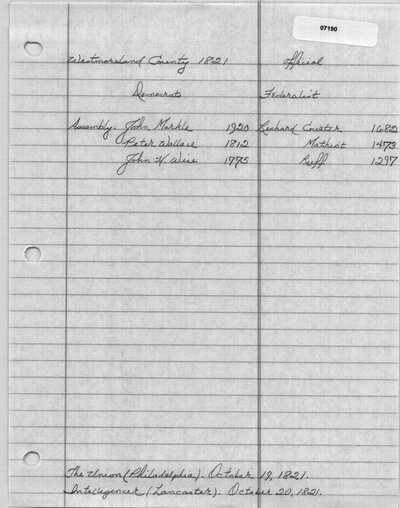 07190
Westmoreland County 1821 Official
Democrats Federalist
Assembly: John Markle 1920 Richard Coulter 1682
Peter Wallace 1812 Mathiot 1473
John H. Wise 1775 Ruff 1297
The Union (Philadelphia). October 19, 1821.
Intelligencer (Lancaster). October 20, 1821.